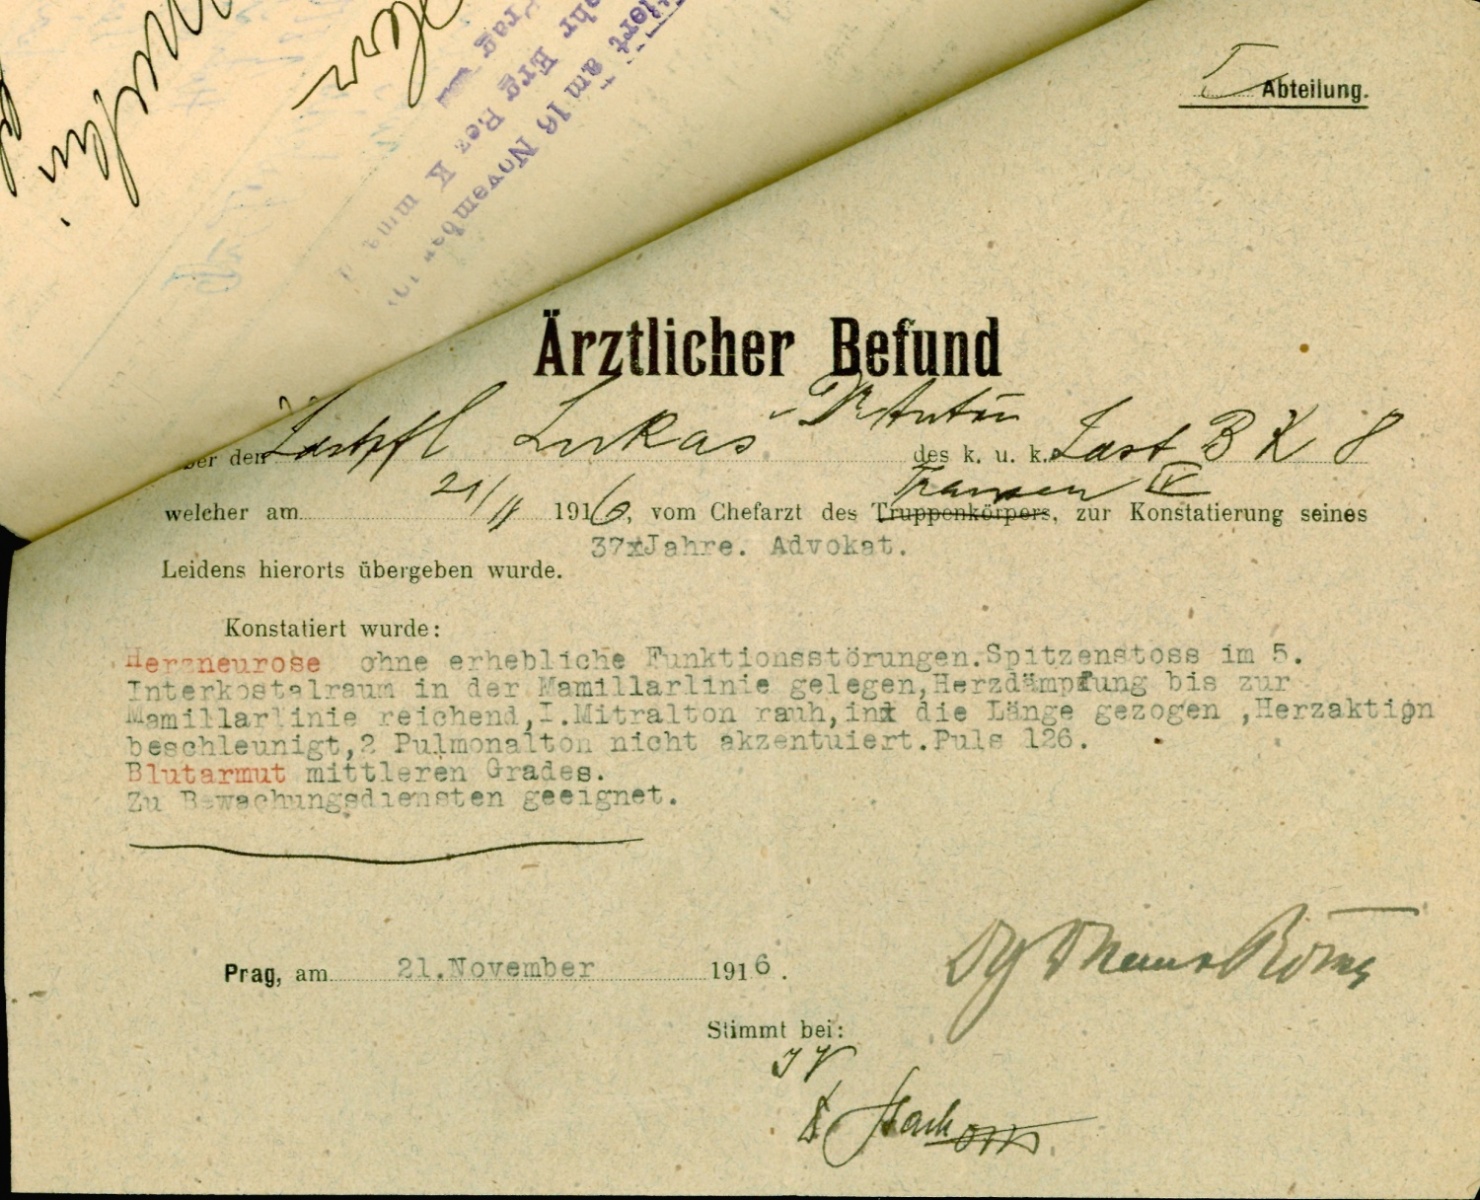 I Abteilung.
Ärztlicher Befund
über den Lukas Dr Anton des k. u. k. Last B K 8
welcher am 21/11 1916, vom Chefarzt des Truppenkörpers, zur Konstatierung seines
37xJahre. Advokat.
Leidens hierorts übergeben wurde.
Konstatiert wurde:
Herzneurose ohne erhebliche Funktionsstörungen.Spitzenstoss im 5.
Interkostalraum in der Mamillarlinie gelegen,Herzdämpfung bis zur
Mamillarlinie reichend,I.Mitralton rauh,in die Länge gezogen ,Herzaktion
beschleunigt,2 Pulmonalton nicht akzentuiert.Puls 126.
Blutarmut mittleren Grades.
Zu Bewachungsdiensten geeignet.
Prag, am 21.November 1916.
Stimmt bei:
am 16 November
Erg Bez K
Prag